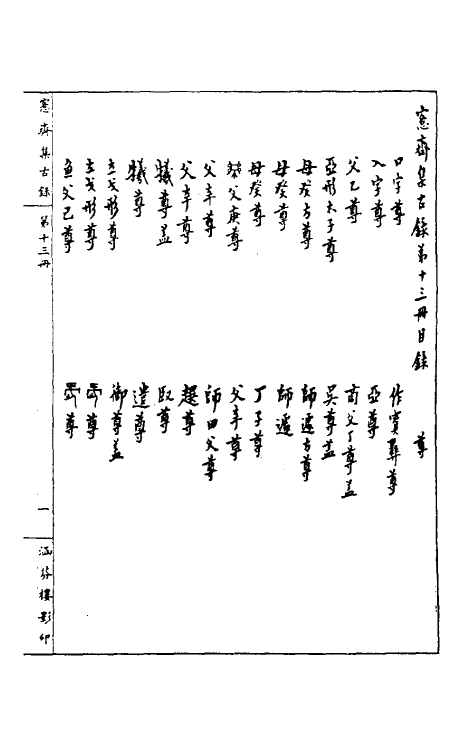 愙齋集古錄第十三冊目錄
尊
口字尊
作寶彝尊
入字尊
亞尊
父乙尊
商父丁尊蓋
亞形木子尊
吳尊蓋
母癸方尊
師遽方尊
母癸尊
師遽
母癸尊
丁子尊
癸父庚尊
父辛尊
父辛尊
師田父尊
父辛尊
趩尊
犧尊蓋
臤尊
犧尊
遣尊
立戈形尊
御尊蓋
立戈形尊
尊
魚父己尊
尊
愙齋集古錄
第十三冊
一
涵芬樓影印